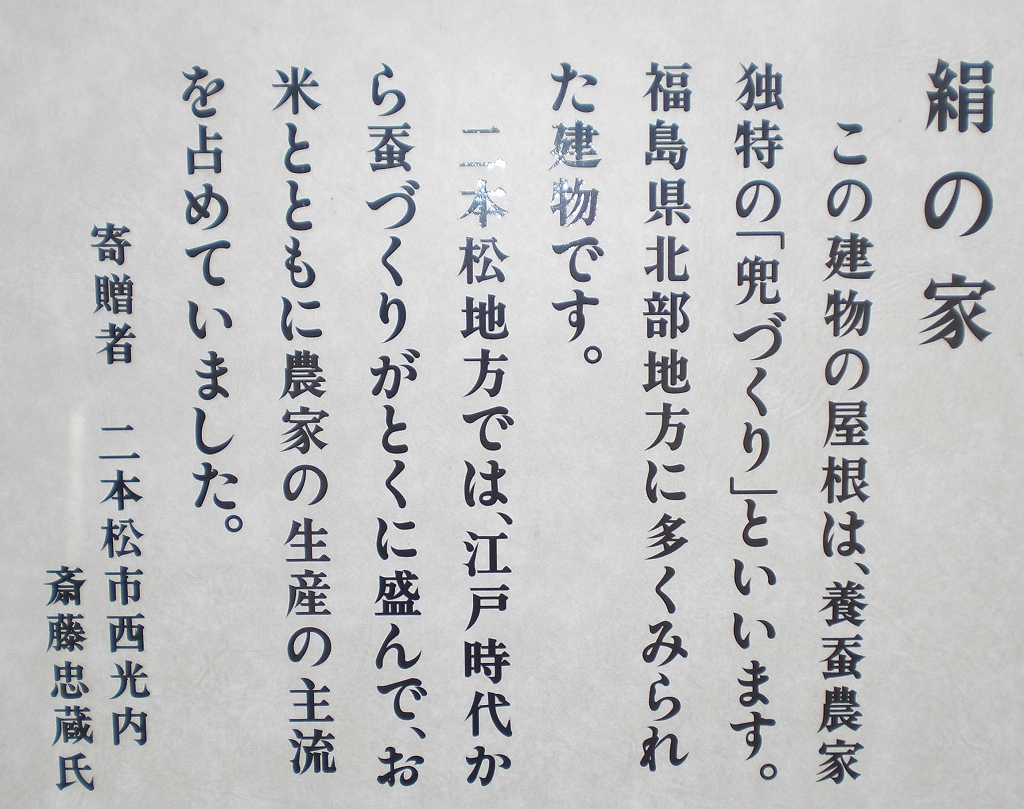 絹の家
この建物の屋根は、養蚕農家
独特の「兜づくり」といいます。
福島県北部地方に多くみられ
た建物です。
二本松地方では、江戸時代か
ら蚕づくりがとくに盛んで、お
米とともに農家の生産の主流
を占めていました。
寄贈者　二本松市西光内
斎藤忠蔵氏